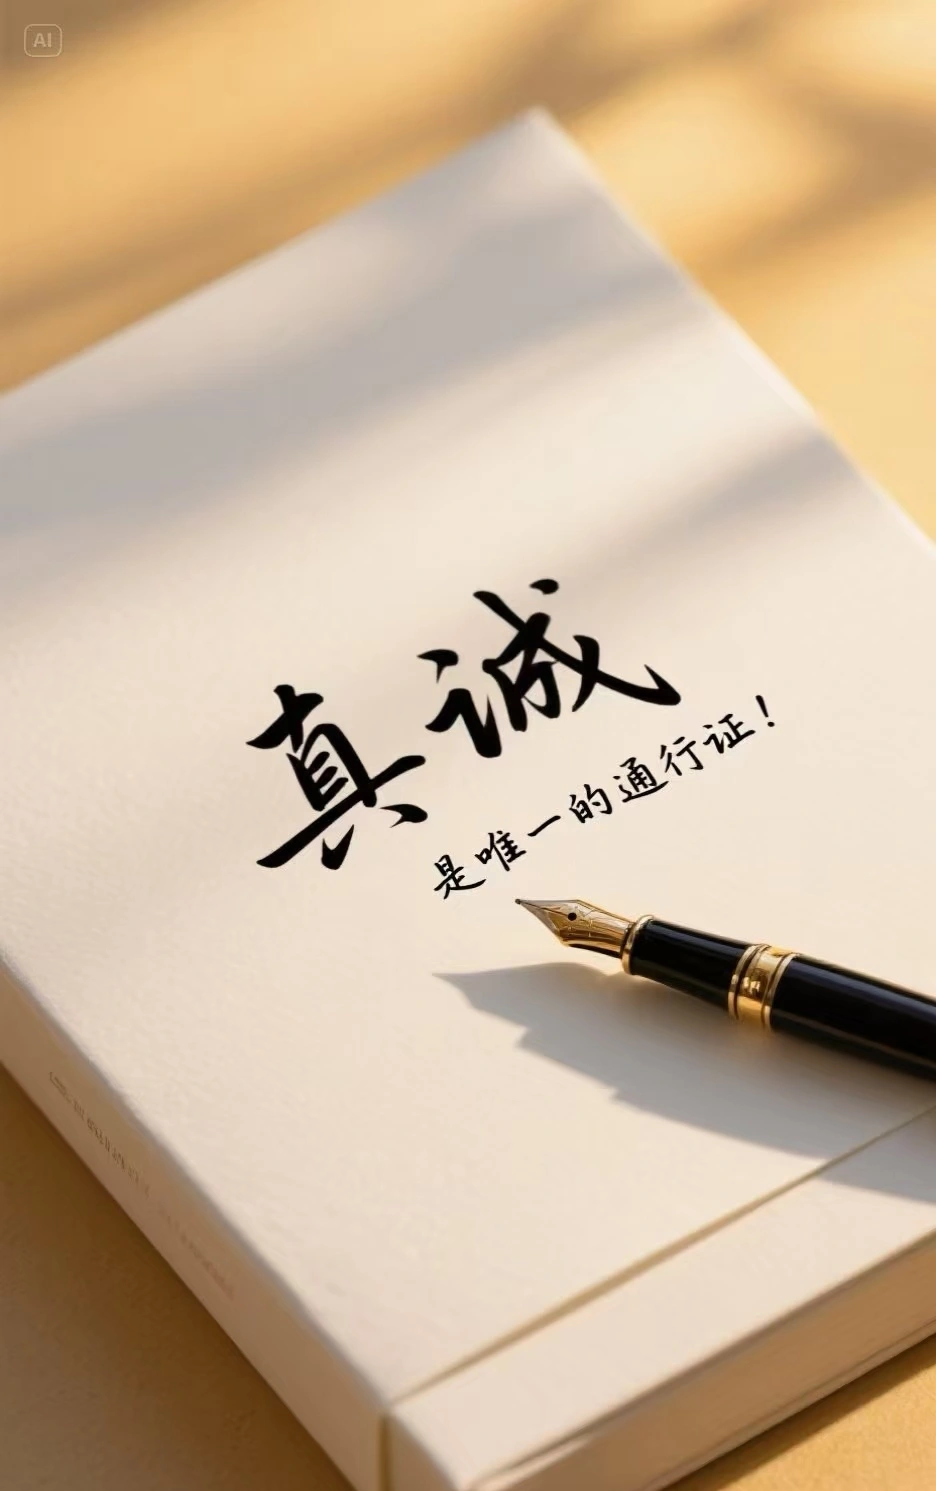 AI
真诚
是唯一的通行证！